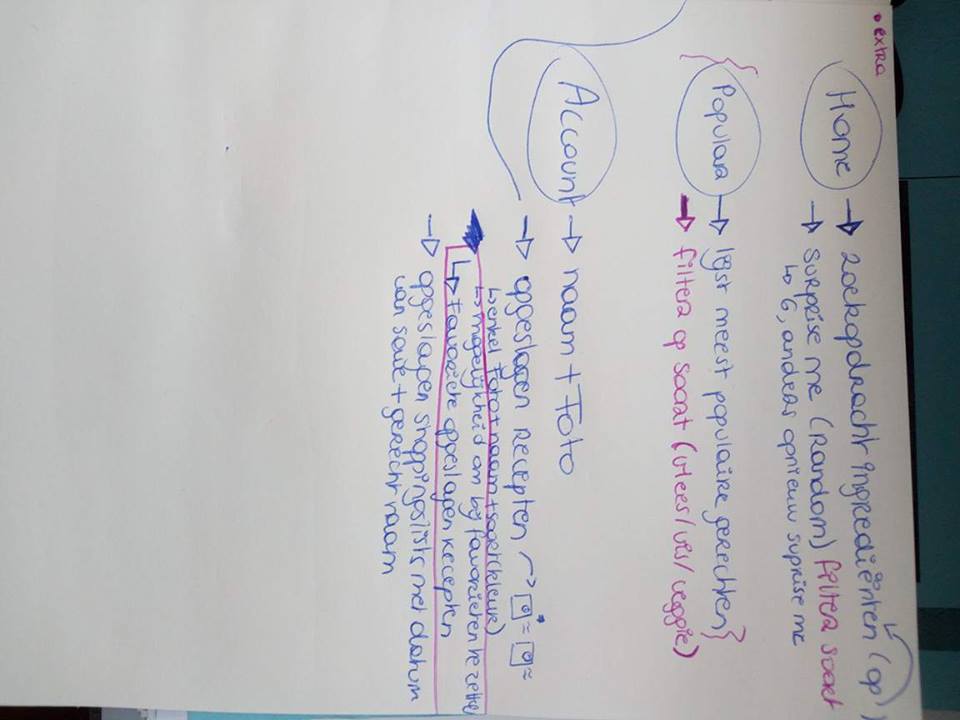 • extra
Home → zoekopdracht ingrediënten (op)
→ surprise me (Random) filter soort
↳ 6, anders opnieuw suprise me
{ Populair → lijst meest populaire gerechten }
→ filter op soort (vlees/vis/veggie)
Account → naam + Foto
→ opgeslagen Recepten →
↳ enkel Foto + naam + soort (kleur)
↳ mogelijkheid om bij favorieten te zetten
↳ Favoriete opgeslagen Recepten
→ opgeslagen shoppingslists met datum
van save + gerecht naam